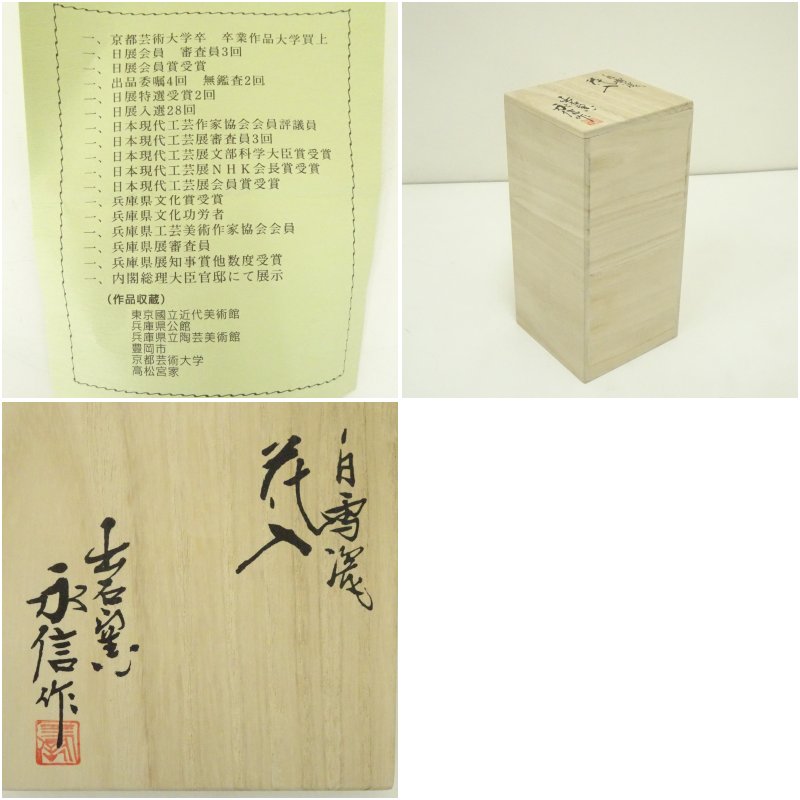 一、京都芸術大学卒　卒業作品大学買上
一、日展会員　審査員3回
一、日展会員賞受賞
一、出品委嘱4回　無鑑査2回
一、日展特選受賞2回
一、日展入選28回
一、日本現代工芸作家協会会員評議員
一、日本現代工芸展審査員3回
一、日本現代工芸展文部科学大臣賞受賞
一、日本現代工芸展ＮＨＫ会長賞受賞
一、日本現代工芸展会員賞受賞
一、兵庫県文化賞受賞
一、兵庫県文化功労者
一、兵庫県工芸美術作家協会会員
一、兵庫県展審査員
一、兵庫県展知事賞他数度受賞
一、内閣総理大臣官邸にて展示
（作品収蔵）
東京國立近代美術館
兵庫県公館
兵庫県立陶芸美術館
豊岡市
京都芸術大学
高松宮家
白雪瓷
花入
出石窯
永信作